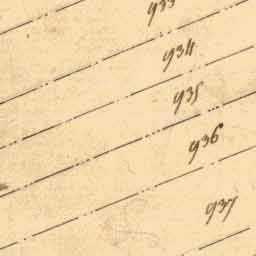 933
934
935
936
937